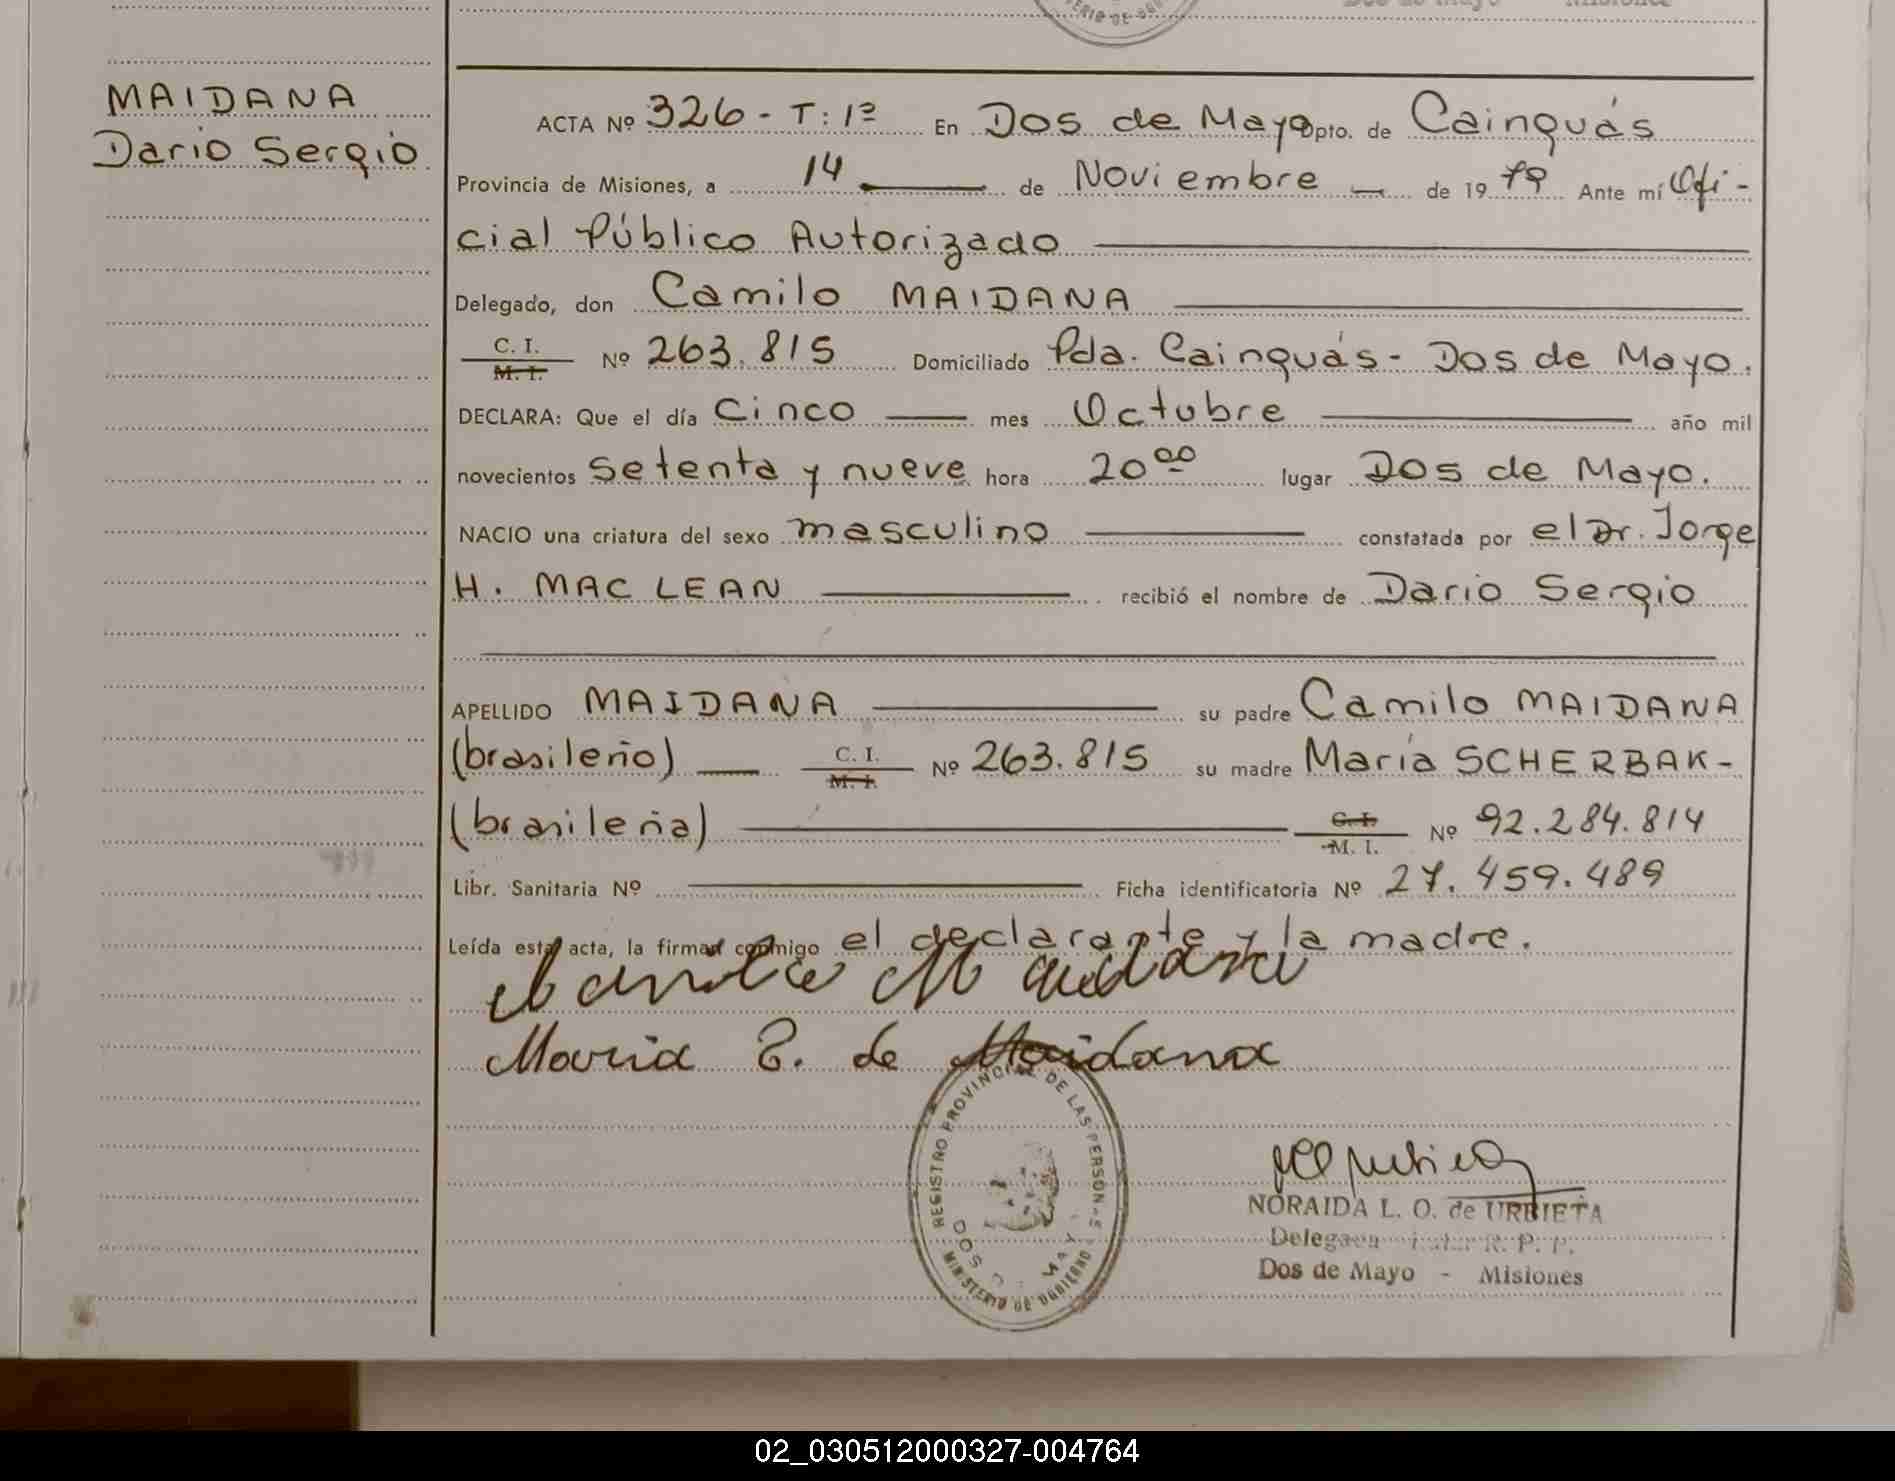 MAIDANA
Dario Sergio
ACTA Nº 326 - T: 1ª En Dos de Mayo Dpto. de Cainguás
Provincia de Misiones, a 14 de Noviembre de 19 79 Ante mí Ofi-
cial Público Autorizado
Delegado, don Camilo MAIDANA
C. I.
M. I. Nº 263.815 Domiciliado Pda. Cainguás - Dos de Mayo.
DECLARA: Que el día Cinco mes Octubre año mil
novecientos setenta y nueve hora 20 00 lugar Dos de Mayo.
NACIO una criatura del sexo masculino constatada por el Dr. Jorge
H. MAC LEAN recibió el nombre de Dario Sergio
APELLIDO MAIDANA su padre Camilo MAIDANA
(brasileño) C. I. Nº 263.815 su madre María SCHERBAK-
M. I.
(brasileña) C. I. Nº 92.284.814
M. I.
Libr. Sanitaria Nº Ficha identificatoria Nº 27.459.489
Leída esta acta, la firman conmigo el declarante y la madre.
Camilo Maidana
Maria de Maidana
REGISTRO PROVINCIAL DE LAS PERSONAS
DOS DE MAYO
MINISTERIO DE GOBIERNO
NORAIDA L. O. de URBIETA
Delegada R. P. P.
Dos de Mayo - Misiones
02_030512000327-004764